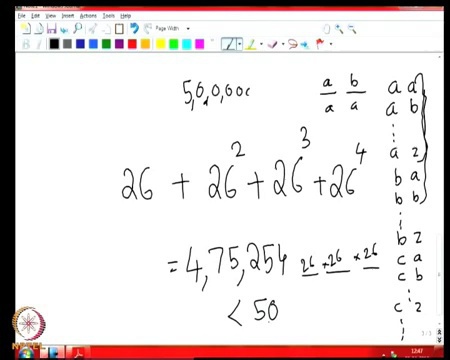 File Edit View Insert Actions Tools Help
Page Width
5,0,0,00c
a b
a a
a a
a b
⋮
a z
b a
b b
⋮
b z
c a
c b
⋮
c z
⋮
26 + 26² + 26³ + 26⁴
= 4,75,254
26 × 26 × 26
< 50
3/3
NPTEL
12:47